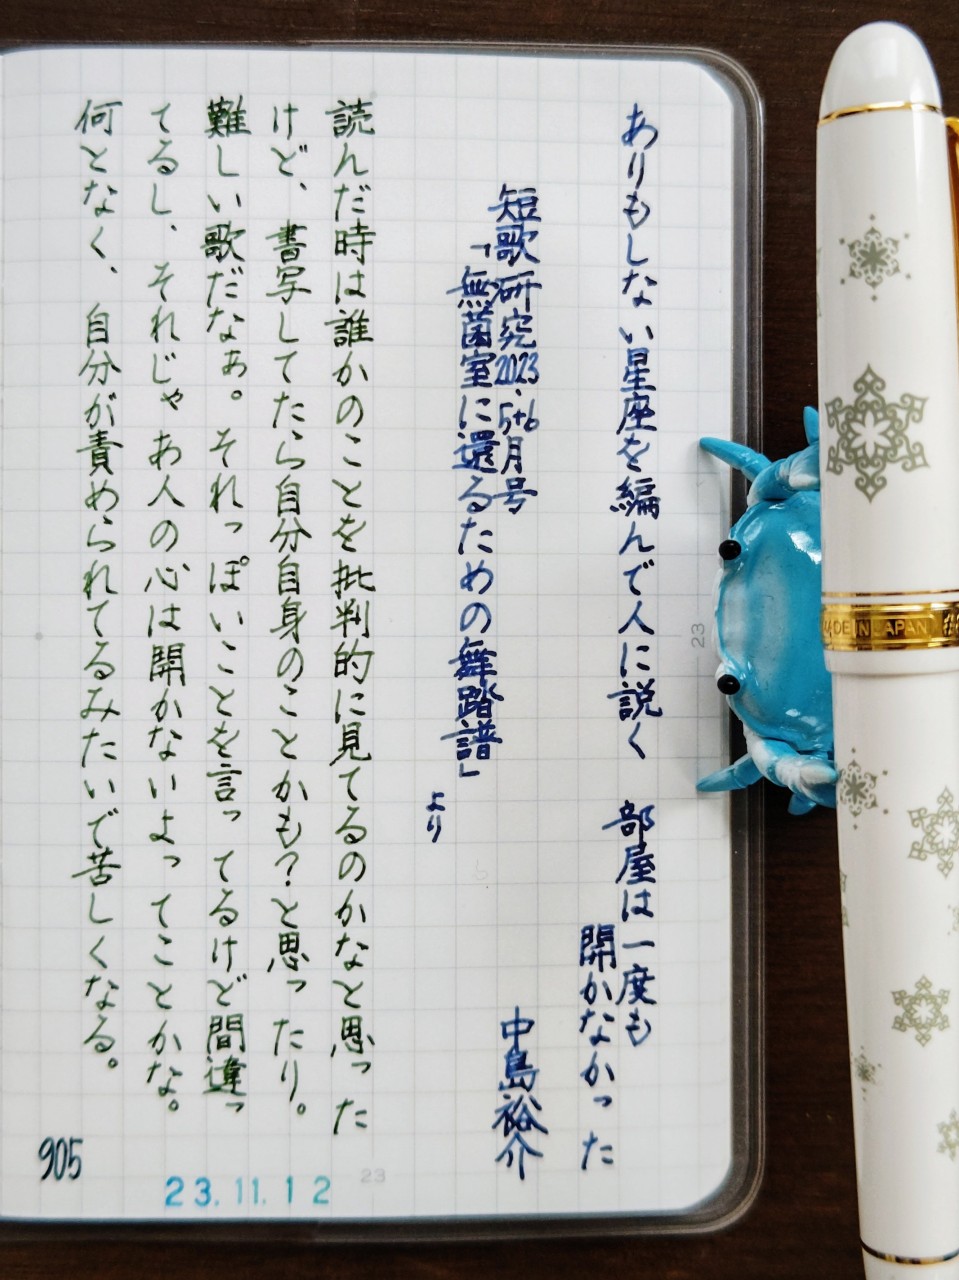 ありもしない星座を編んで人に説く　部屋は一度も
開かなかった
短歌研究2023.5+6月号
「無菌室に還るための舞踏譜」
より
中島裕介
読んだ時は誰かのことを批判的に見てるのかなと思った
けど、書写してたら自分自身のことかも？と思ったり。
難しい歌だなぁ。それっぽいことを言ってるけど間違っ
てるし、それじゃあ人の心は開かないよってことかな。
何となく、自分が責められてるみたいで苦しくなる。
905
23.11.12
23
23
MADE IN JAPAN